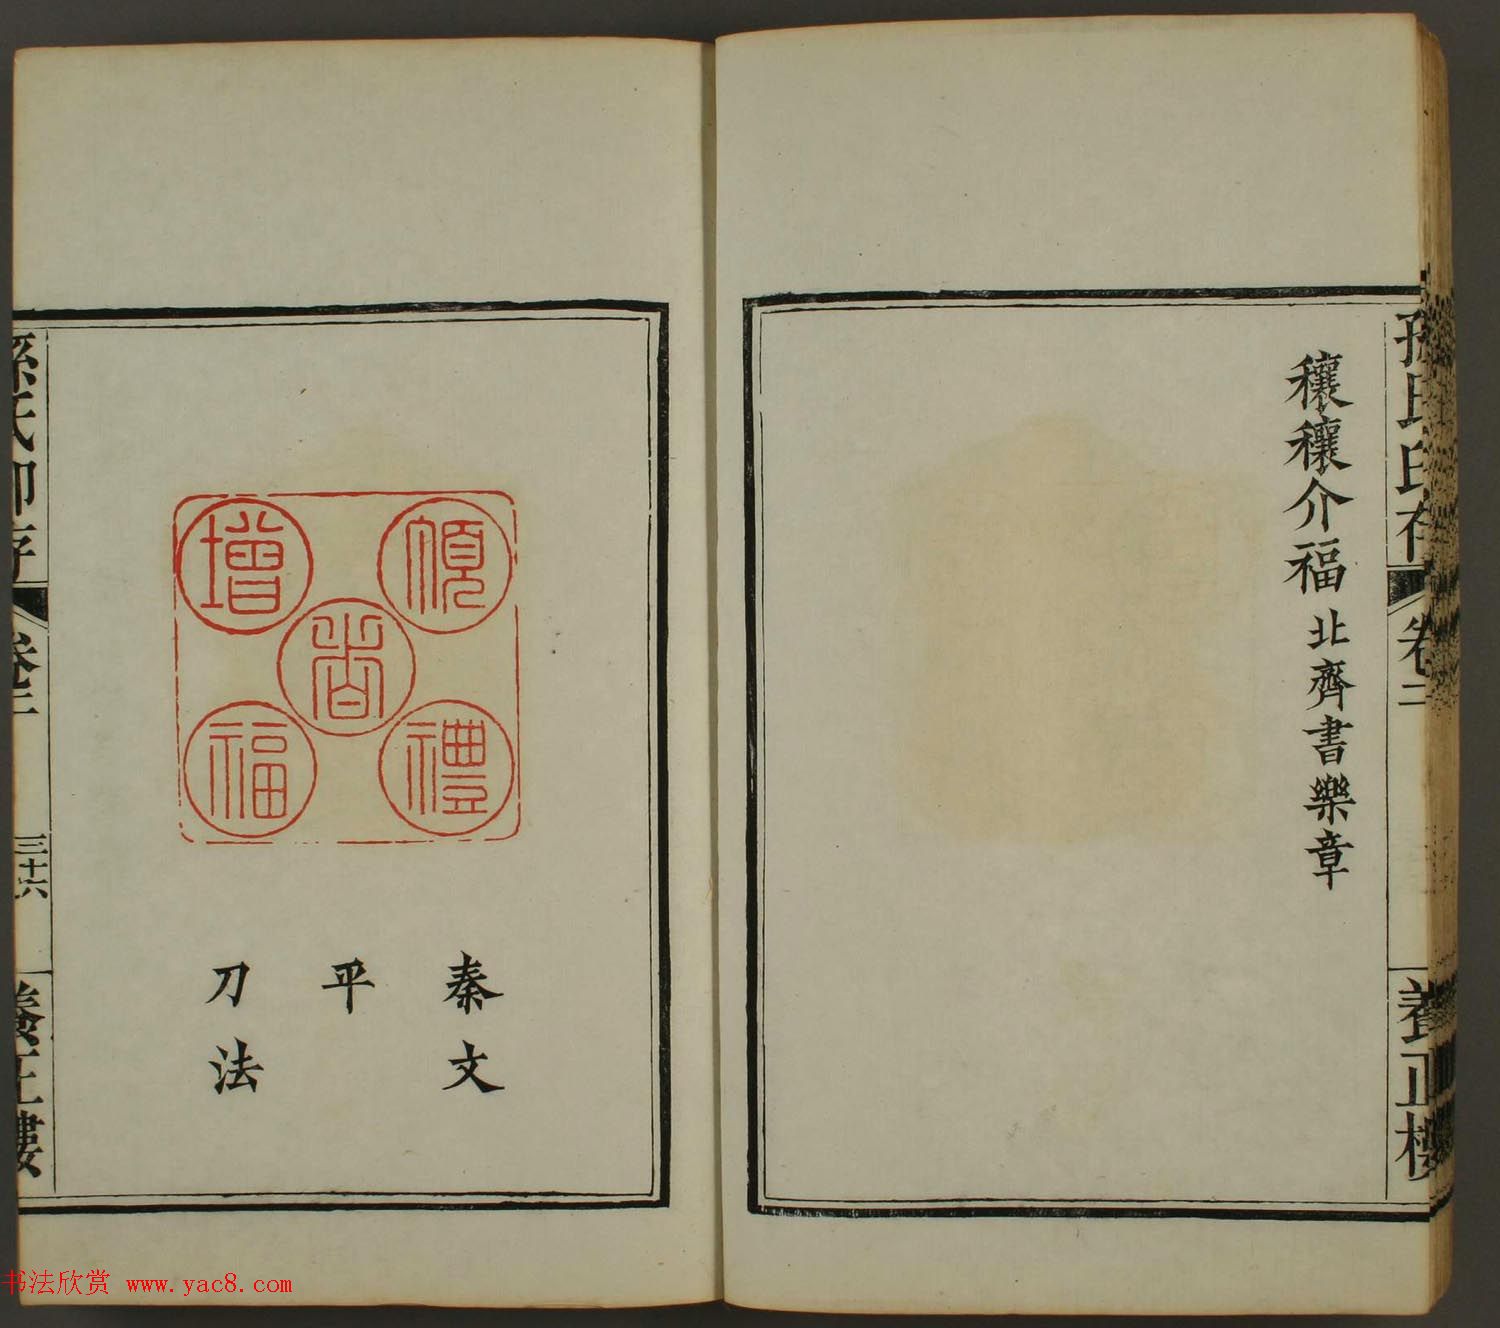 孫氏印存
卷二
養正樓
穰穰介福 北齊書樂章
禮
增
福
秦文
平
刀法
孫氏印存
卷二
三十六
養正樓
书法欣赏 www.yac8.com